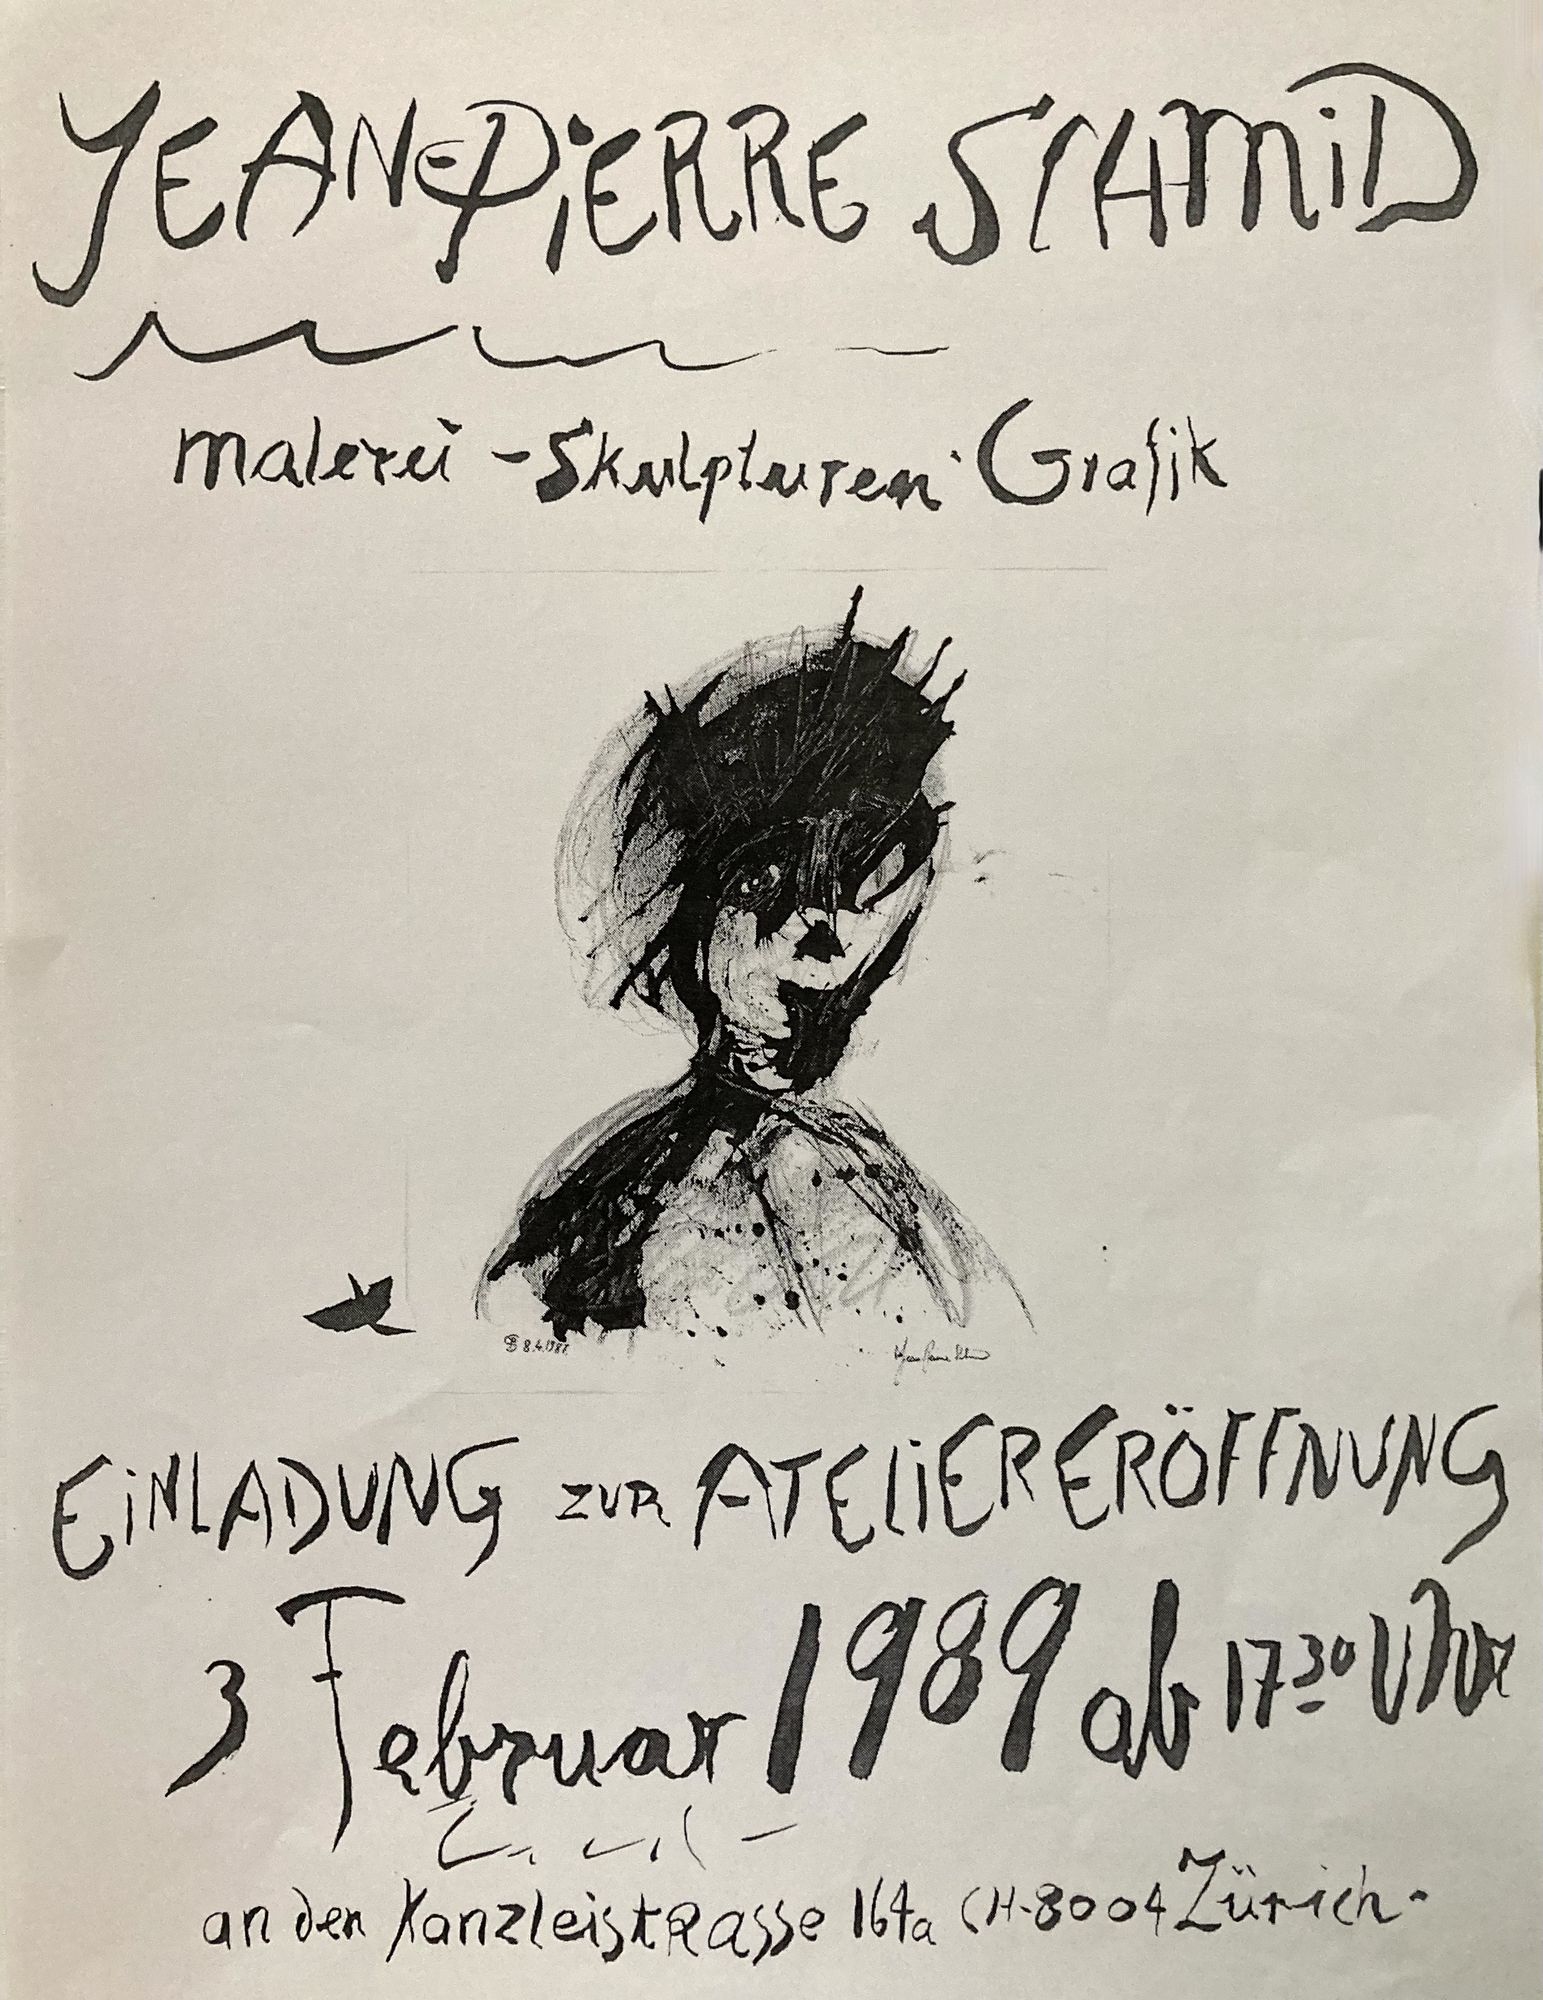 JEAN-PiERRE SCHMiD
malerei - Skulpturen · Grafik
EiNLADUNG ZUR ATELiERERÖFFNUNG
3 Februar 1989 ab 17 30 Uhr
an der Kanzleistrasse 164a CH-8004 Zürich-